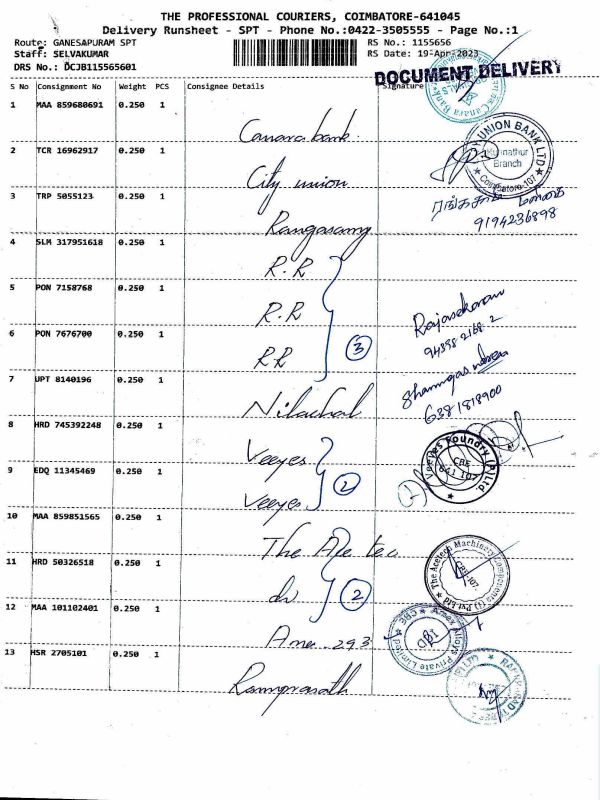 THE PROFESSIONAL COURIERS, COIMBATORE-641045
Delivery Runsheet - SPT - Phone No.:0422-3505555 - Page No.:1
Route: GANESAPURAM SPT
RS No.: 1155656
Staff: SELVAKUMAR
RS Date: 19-Apr-2023
DRS No.: DCJB115565601
DOCUMENT DELIVERY
S No Consignment No Weight PCS Consignee Details Signature
Canara Bank
1 MAA 859680691 0.250 1
Canara bank.
UNION BANK LTD
Branch
Coimbatore-107
2 TCR 16962917 0.250 1
City union
3 TRP 5055123 0.250 1
Rangasamy
9194236898
4 SLM 317951618 0.250 1
R.R
5 PON 7158768 0.250 1
R.R
Rajasekaran
6 PON 7676700 0.250 1
RR
3
7 UPT 8140196 0.250 1
Nilachal
6381818900
8 HRD 745392248 0.250 1
Veeyes
Veeyes Foundry (P) Ltd
CBE
641 107
9 EDQ 11345469 0.250 1
Veeyes
2
10 MAA 859851565 0.250 1
The Ace tec
The Acetech Machinery Components (I) Pvt Ltd
CBE-107
11 HRD 50326518 0.250 1
do
2
12 MAA 101102401 0.250 1
Amex 293
Amex Alloys Private Limited
CBE
13 HSR 2705101 0.250 1
Ramprasath